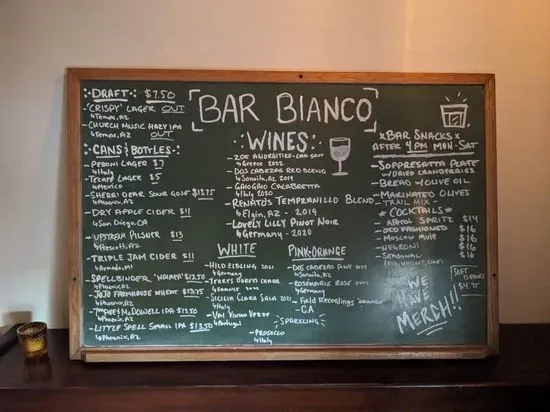 DRAFT: $7.50
'CRISPY' LAGER OUT
↳Tempe, AZ
CHURCH MUSIC HAZY IPA
↳Tempe, AZ OUT
CANS & BOTTLES
PERONI LAGER $7
↳Italy
TECATE LAGER $5
↳Mexico
SHERRI DEAR SOUR GOSE $13.75
↳Phoenix, AZ
DRY APPLE CIDER $11
↳San Diego, CA
UPSTREAM PILSNER $13
↳Prescott, AZ
TRIPLE JAM CIDER $11
SPELLBINDER $13.50
↳Phoenix, AZ
JOJO FARMHOUSE WHEAT $13.75
↳Phoenix, AZ
MCDOWELL IPA $13.50
↳Phoenix, AZ
LITTLE SPELL SMALL IPA $13.50
↳Phoenix, AZ
BAR BIANCO
WINES:
↳Greece 2022
DOS CABEZAS RED BLEND
↳Sonoita, AZ 2019
CALABRETTA
↳Italy 2020
RENATO'S TEMPRANILLO BLEND
↳Elgin, AZ - 2019
LOVELY LILLY PINOT NOIR
↳Germany - 2020
WHITE
- HILD ELBLING 2021
↳Germany
↳France 2021
- SICILIA 2021
↳Italy
- VINHO VERDE
↳Portugal
PINK-ORANGE
- DOS CABEZAS PINK 2022
↳Sonoita, AZ
ROSÉ 2021
↳Germany
- Field Recordings
- CA
SPARKLING
- PROSECCO
↳Italy
*BAR SNACKS*
AFTER 4PM MON-SAT
- SOPPRESATTA PLATE
W/DRIED CRANBERRIES
- BREAD W/OLIVE OIL
- MARINATED OLIVES
- TRAIL MIX -
* COCKTAILS *
- APEROL SPRITZ $14
- OLD FASHIONED $16
- MOSCOW MULE $16
- NEGRONI $16
- SEASONAL $16
SOFT
DRINKS
$4.75
WE
HAVE
MERCH!!